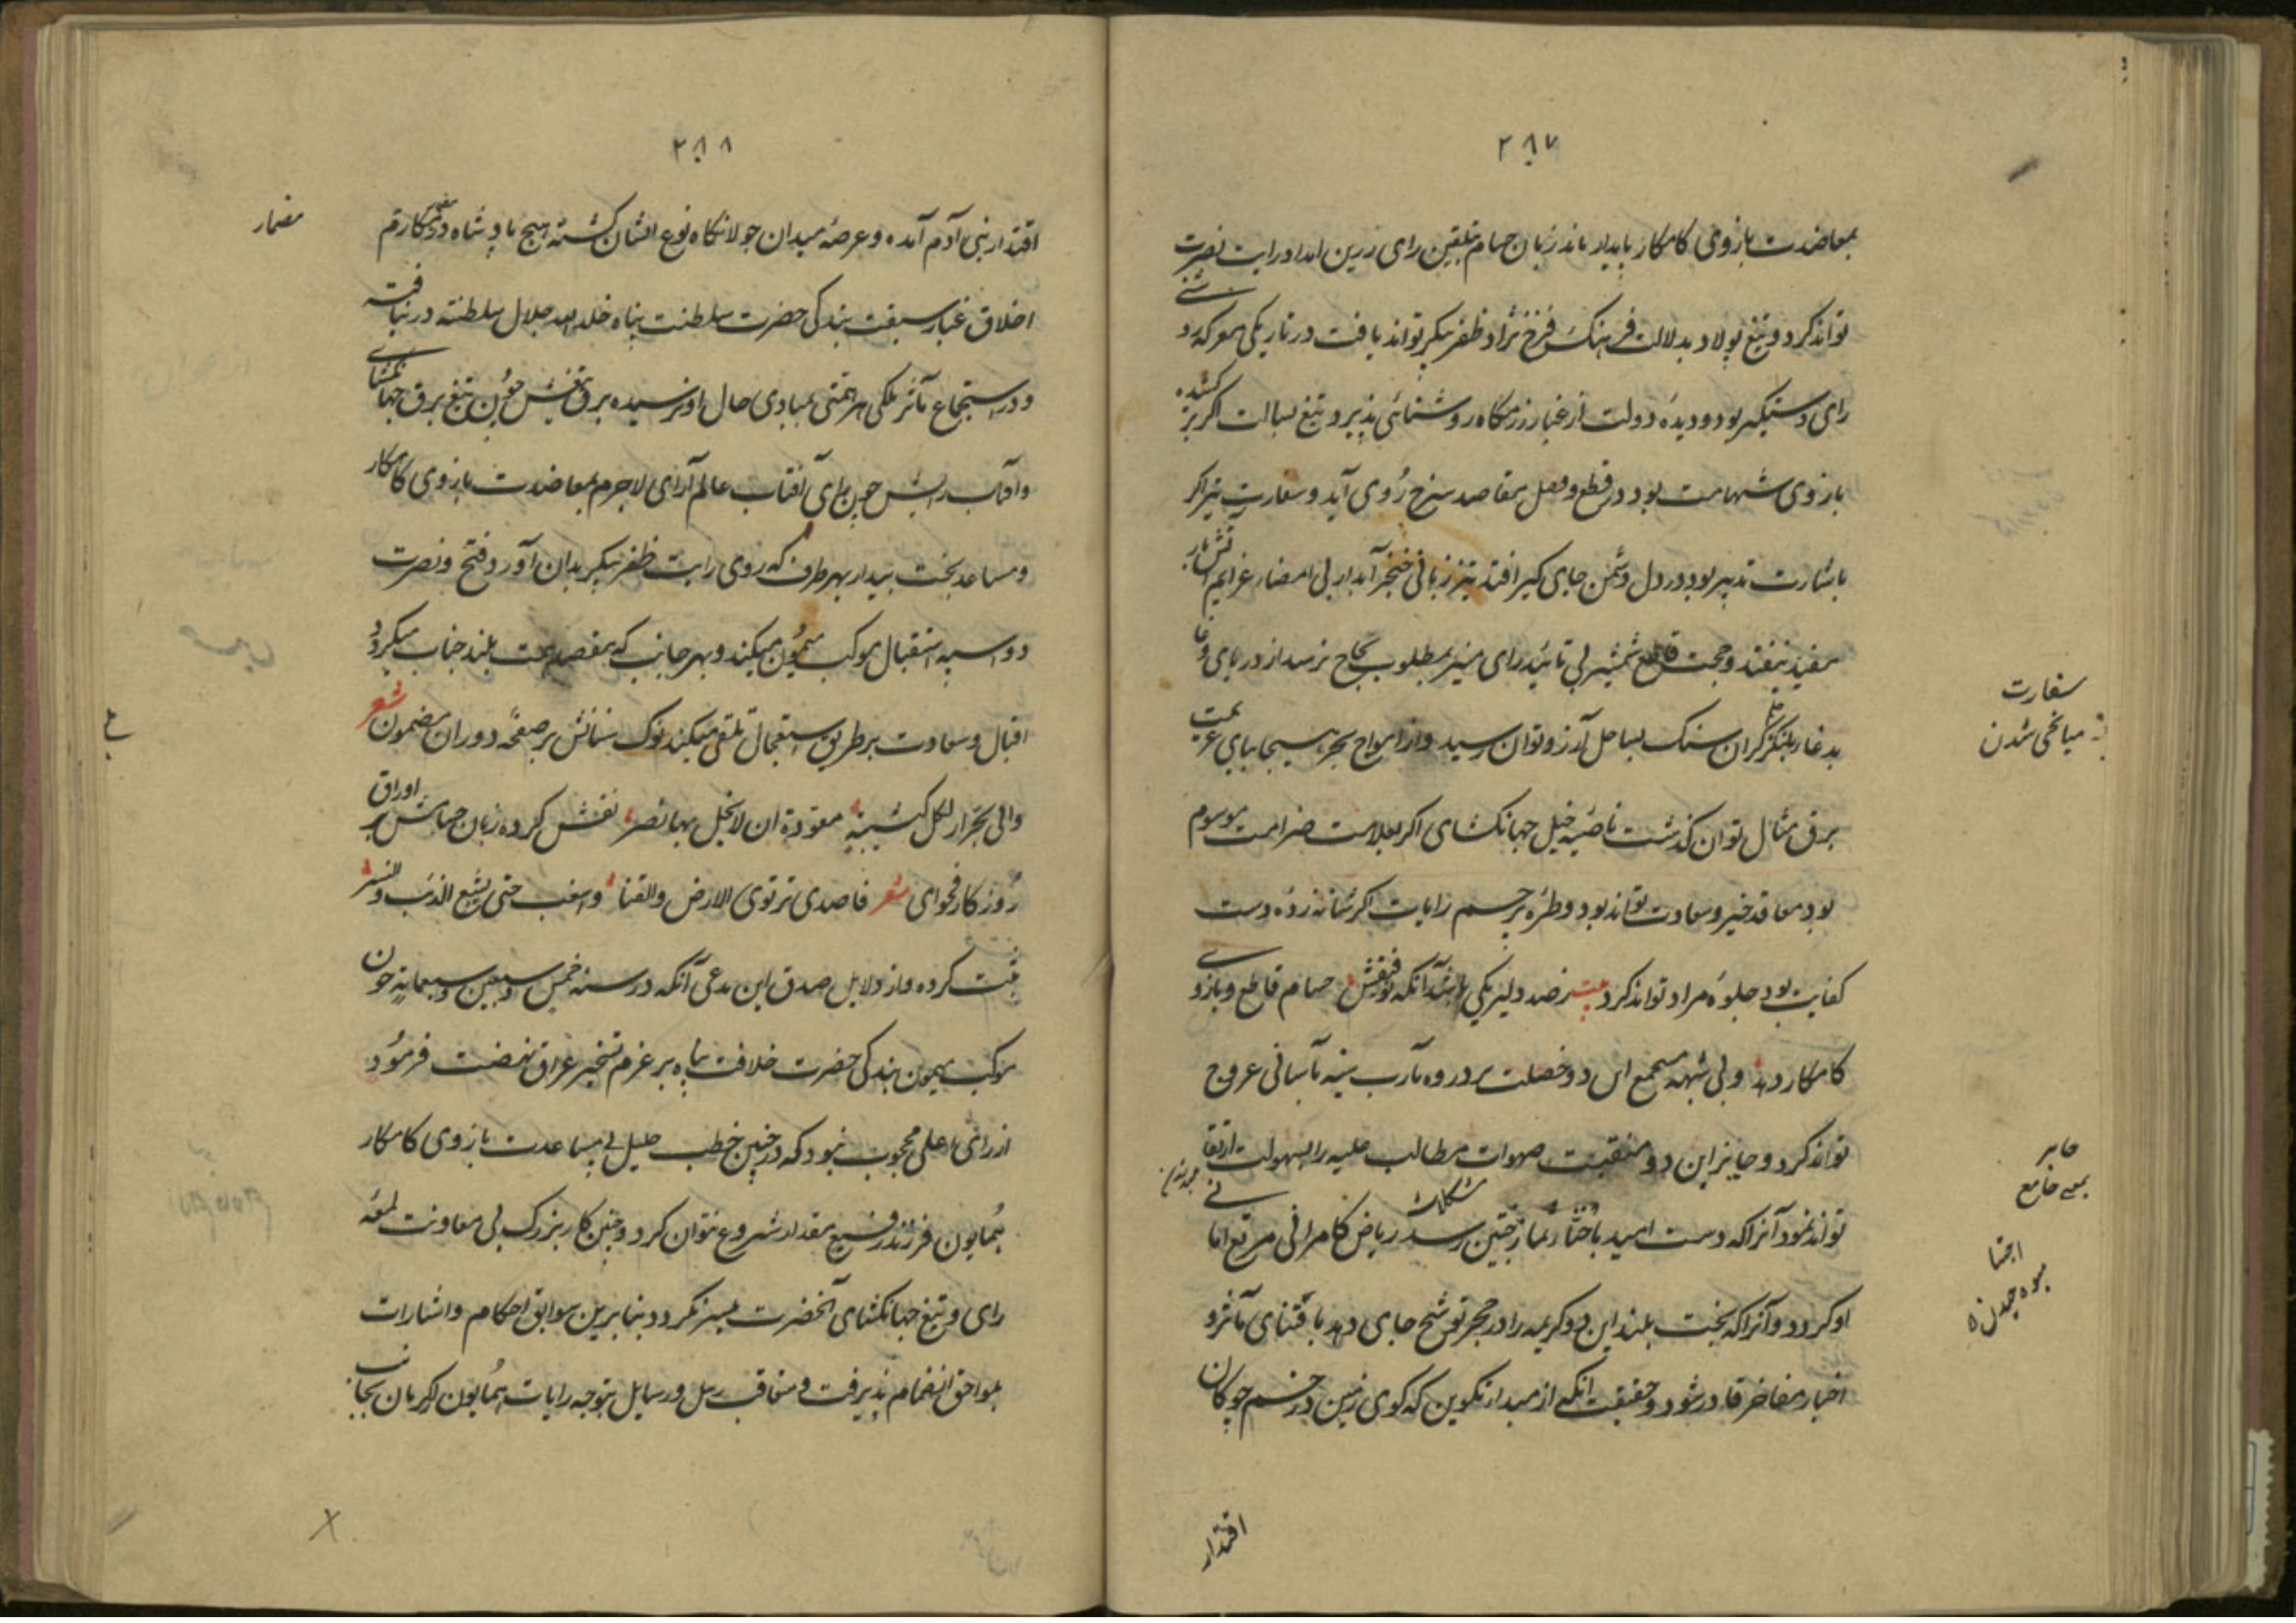 ۲۸۷
بمعاضدت بازوی کامکار پایدار ماند زبان حسام بتلقین رای زرین امداد رایت نصرت
تواند کرد و تیغ پولاد بدلالت فرهنگ فرخ نژاد ظفر پیکر تواند یافت در تاریکی معرکه
رای دستگیر بود و دیده دولت از غبار رزمگاه روشنائی پذیرد تیغ بسالت اگر برکشیده
بازوی شهامت بود در قطع و فصل مقاصد سرخ روی آید و سفارت تیر اگر
باشارت تدبیر بود در دل دشمن جای گیر افتد تیز زبانی خنجر آبدار بی امضاء عزایم آتش بار
مفید نیفتد و حجت قاطع شمشیر بی تائید رای منیر بمطلوب نجاح نرسد از دریای
بلنگر گران سنگ بساحل آرزو توان رسید و از امواج بحر هیجا بپای عزیمت
برق مثال توان گذشت ناصیه خیل جهانگشای اگر بعلامت صرامت موسوم
بود معاقد خیر و سعادت تواند بود و طره پرچم رایات اگر شانه زده دست
کفایت بود جلوه مراد تواند کرد ز صد دلیر یکی باشد آنکه توفیقش حسام قاطع و بازوی
کامکار دهد و بی شبهه مستجمع این دو خصلت بر ذروه مآرب سنیه بآسانی عروج
تواند کرد و حایز این دو منقبت صهوات مطالب علیه را بسهولت ارتقا
تواند نمود آنرا که دست امید باجتناء ثمار چنین مشکلات رسد ریاض کامرانی مرتع امانی
او گردد و آنرا که بخت بلند این دو کریمه را در حجر توشح جای دهد باقتنای مآثر و
اخبار مفاخر قادر شود و حقیقت آنکه از مبداء تکوین که گوی زمین در خم چوگان
اقتدار
سفارت
میانجی شدن
حایز
بمعنی جامع
اجتنا
میوه چیدن
۲۸۸
اقتدار بنی آدم آمده و عرصه میدان جولانگاه نوع انسان گشته هیچ پادشاه در مکارم
اخلاق غبار سبقت بندگی حضرت سلطنت پناه خلد الله جلال سلطنته در نیافته
و در استجماع مآثر ملکی هر همتی بمبادی حال او نرسیده برق تیغش چون تیغ برق جهانگشای
و آفتاب رایش چون رای آفتاب عالم آرای لاجرم بمعاضدت بازوی کامکار
و مساعد بخت بیدار بهر طرف که روی رایت ظفر پیکر بدان آورد فتح و نصرت
دو اسپه استقبال موکب میمون میکند و بهر جانب که مقصد همت بلند جناب میگردد
اقبال و سعادت بر طریق استعجال تلقی میکند نوک سنانش بر صفحه دوران مضمون شعر
والی لجرار لکل کتیبة معودة ان لا یخل بها نصر نقش کرده زبان حسامش بر اوراق
روزگار فحوای شعر فاصدی تا ترتوی الارض والقنا واسغب حتی یشبع الذئب والنسر
ثبت کرده و از دلایل صدق این مدعی آنکه در سنه خمس و سبعین و سبعمایه چون
موکب میمون بندگی حضرت خلافت پناه بر عزم تسخیر عراق نهضت فرمود
از رای اعلی محجوب نبود که در چنین خطب جلیل بی مساعدت بازوی کامکار
همایون فرزند رفیع مقدار شروع نتوان کرد و چنین کار بزرگ بی معاونت لمعه
رای و تیغ جهانگشای آنحضرت میسر نگردد بنا برین سوابق احکام و اشارات
بلواحق انضمام پذیرفت و متعاقب رسل و رسایل بتوجه رایات همایون از کرمان بجانب
مضمار